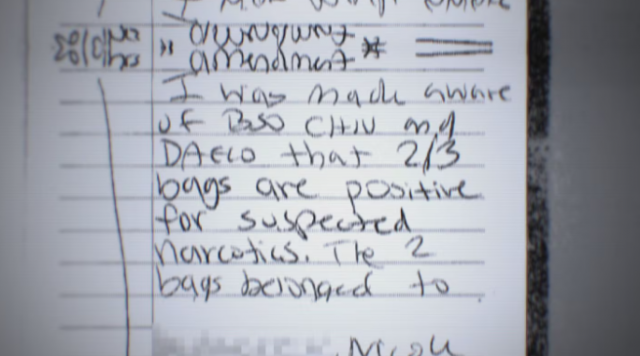 amendment *
I was made aware
of BSO CHIU and
DAELO that 2/3
bags are positive
for suspected
narcotics. The 2
bags belonged to